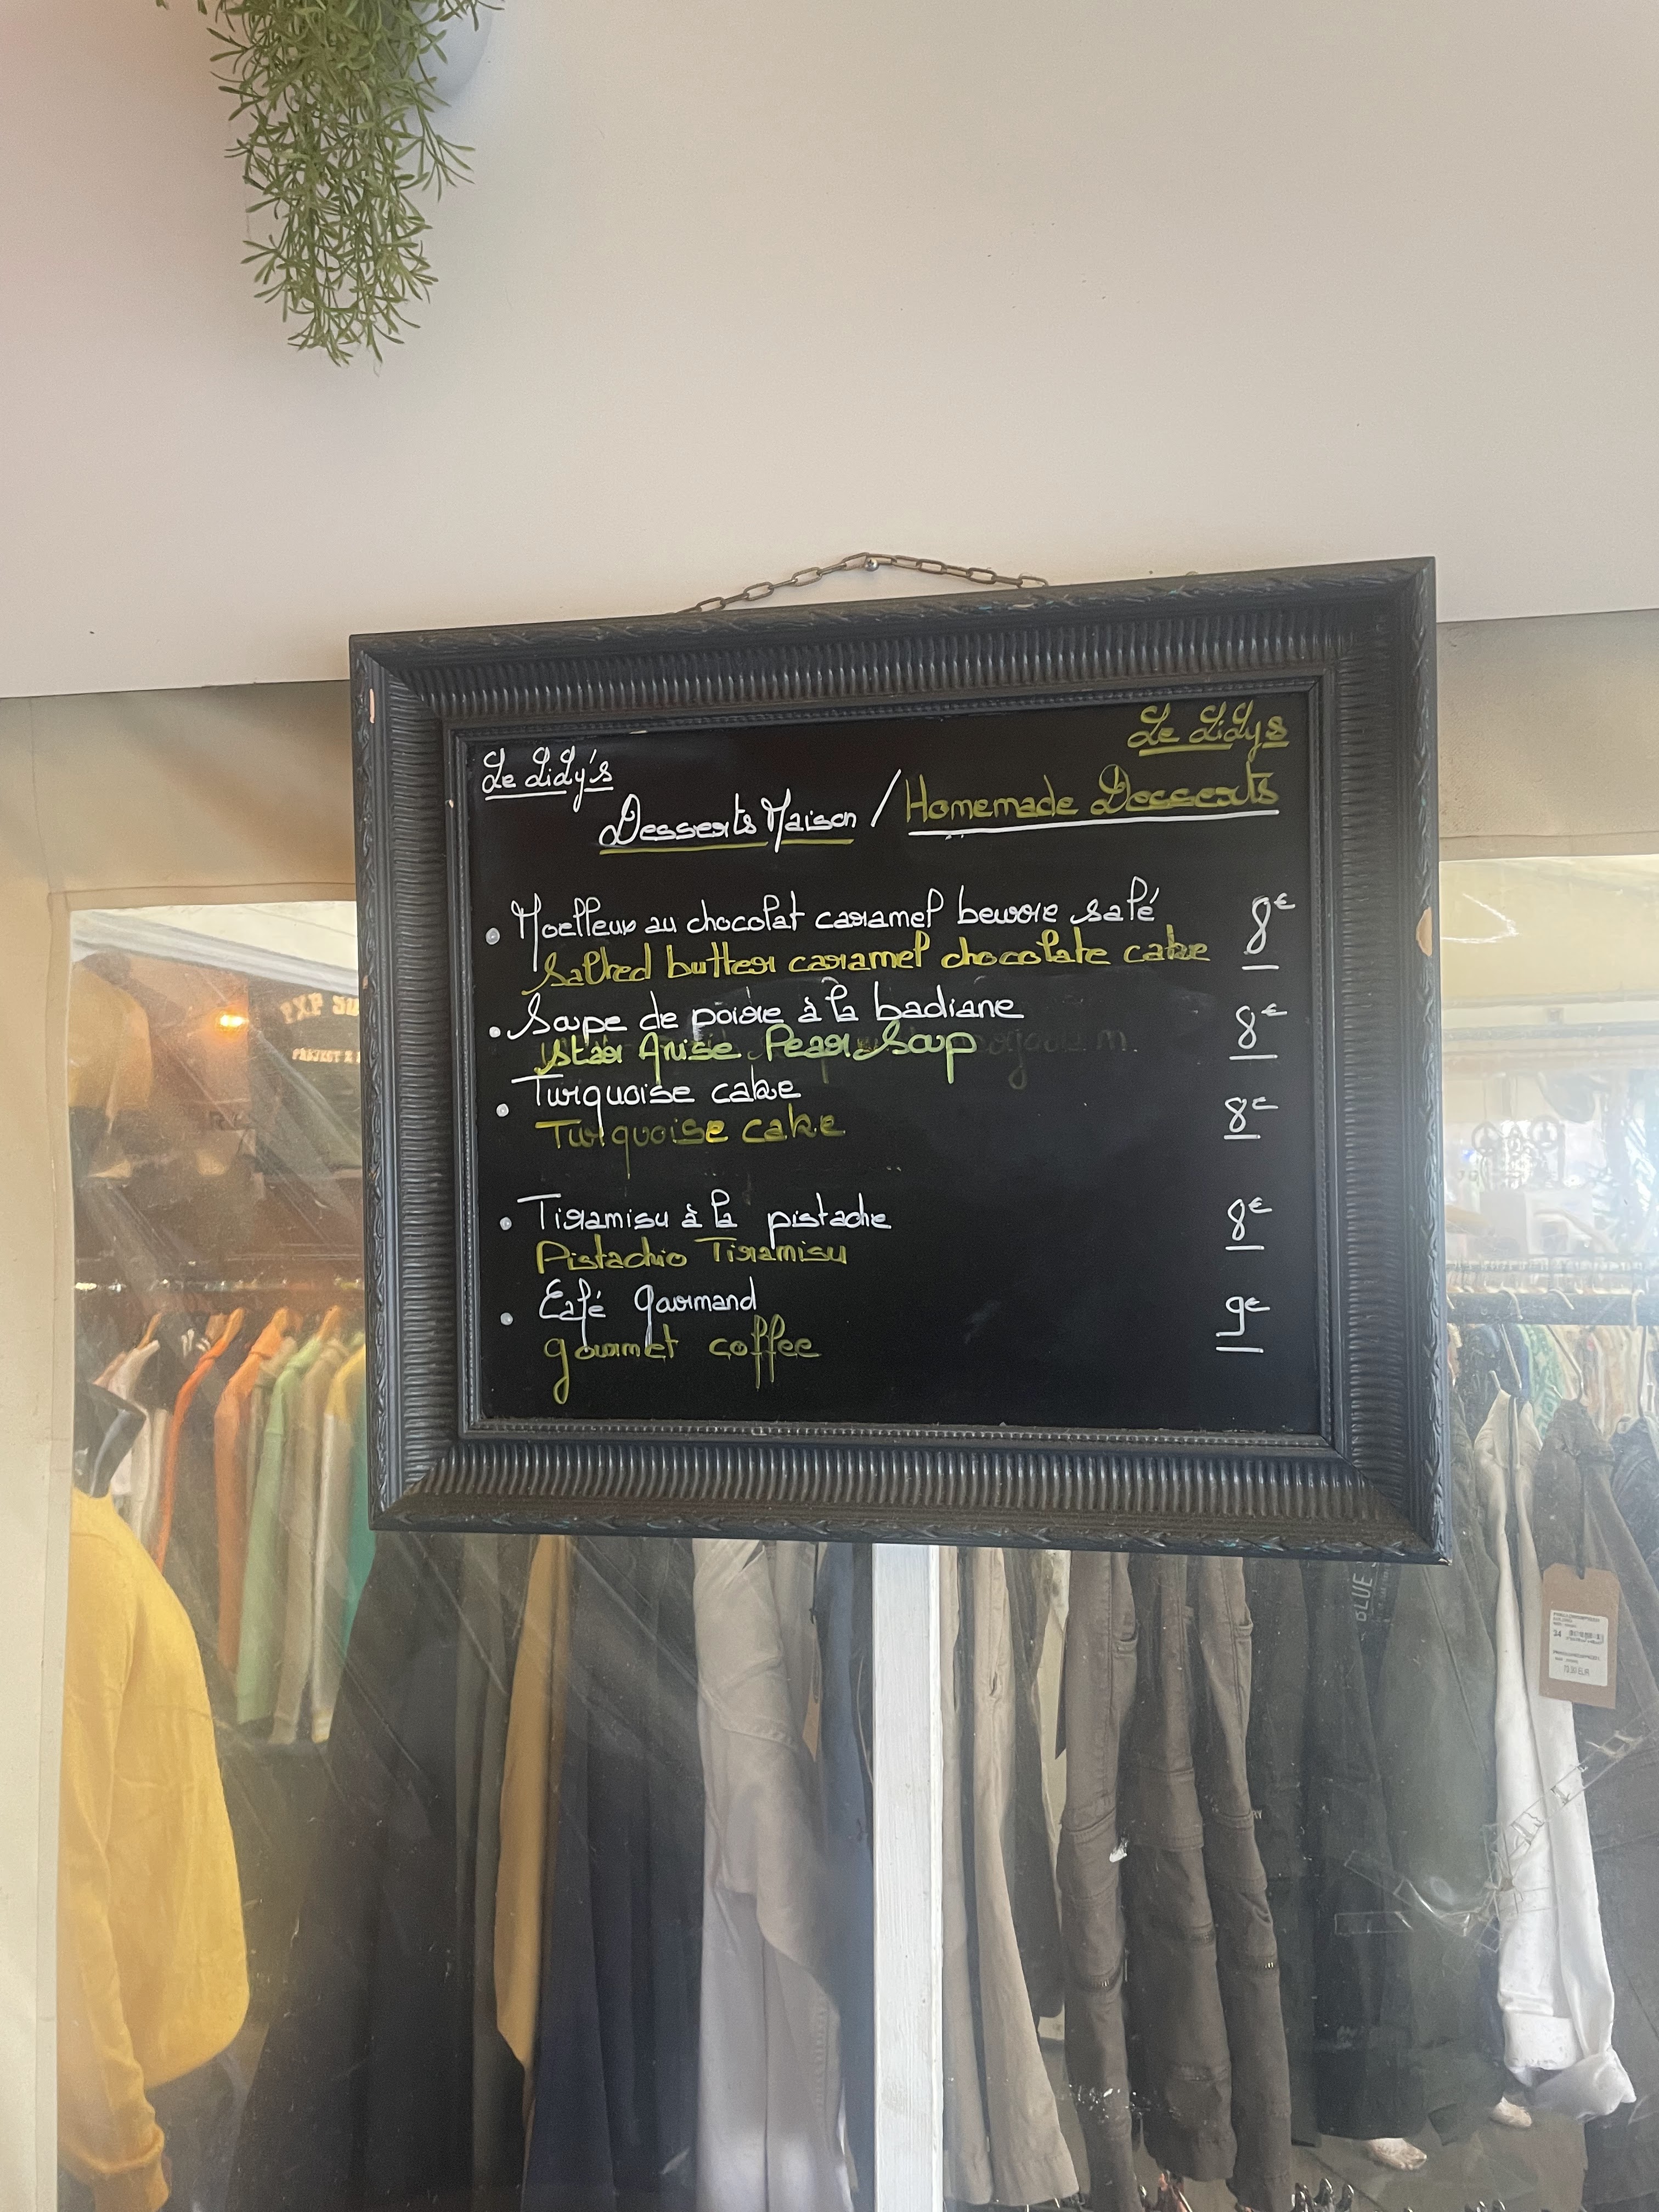 Le Lidy's
Le Lidys
Desserts Maison / Homemade Desserts
• Moelleux au chocolat caramel beurre salé 8€
Salted butter caramel chocolate cake
• Soupe de poire à la badiane 8€
Star Anise Pear Soup
• Turquoise cake 8€
Turquoise cake
• Tiramisu à la pistache 8€
Pistachio Tiramisu
• Café gourmand 9€
gourmet coffee
BLUE
34